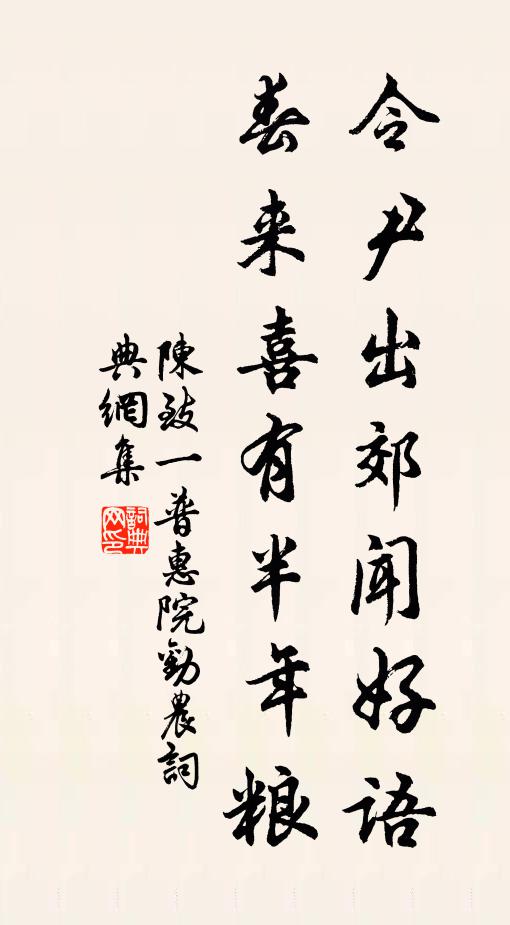 令尹出郊聞好語
春来喜有半年粮
陳致一普惠院勸農詞
典網集
詞典网印